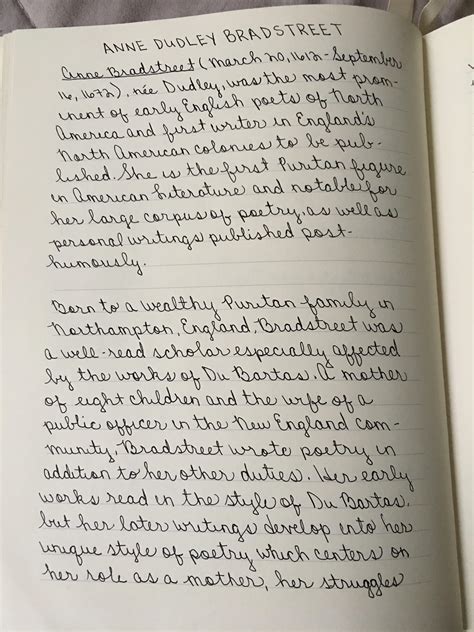 ANNE DUDLEY BRADSTREET
Anne Bradstreet (March 20, 1612 - September
16, 1672), née Dudley, was the most prom-
inent of early English poets of North
America and first writer in England's
North American colonies to be pub-
lished. She is the first Puritan figure
in American Literature and notable for
her large corpus of poetry, as well as
personal writings published post-
humously.
Born to a wealthy Puritan family in
Northampton, England, Bradstreet was
a well-read scholar especially affected
by the works of Du Bartas. A mother
of eight children and the wife of a
public officer in the New England com-
munity, Bradstreet wrote poetry in
addition to her other duties. Her early
works read in the style of Du Bartas,
but her later writings develop into her
unique style of poetry which centers on
her role as a mother, her struggles